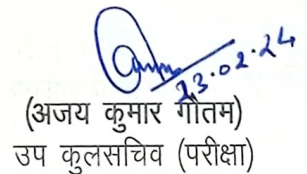 23.02.24
(अजय कुमार गौतम)
उप कुलसचिव (परीक्षा)